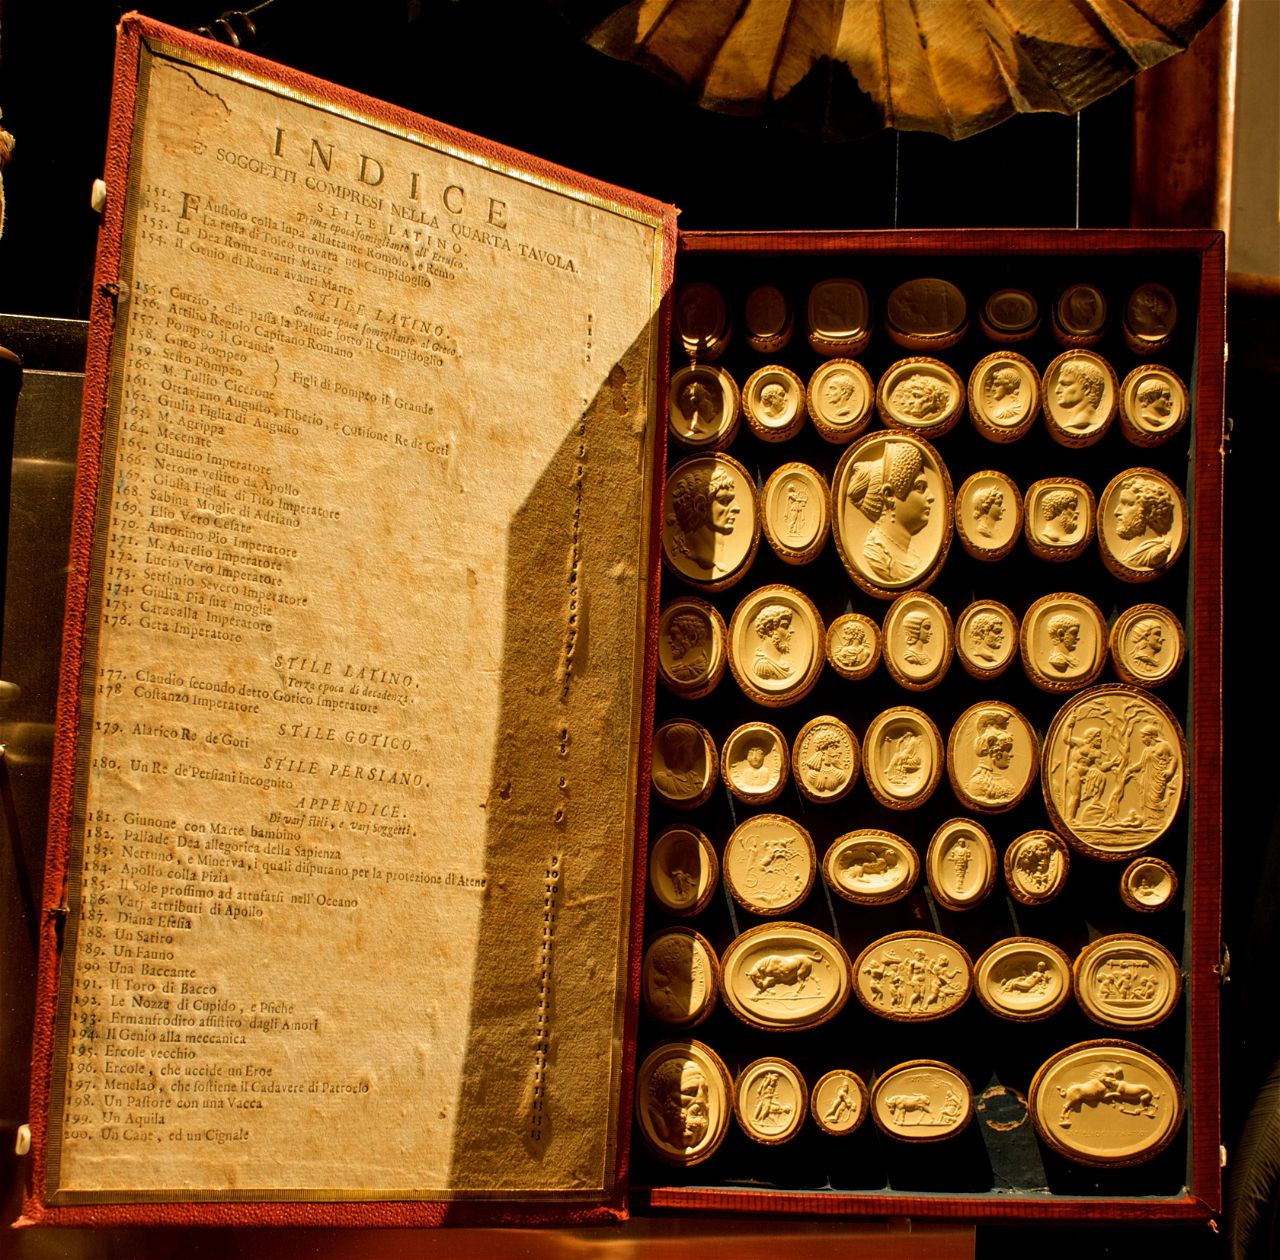 INDICE
E' SOGGETTI COMPRESI NELLA QUARTA TAVOLA.
STILE LATINO.
Prima epoca ſomigliante all' Etruſco.
151. Fauſtolo colla lupa allattante Romolo, e Remo
152. La teſta di Toleo trovata nel Campidoglio
153. La Dea Roma avanti Marte
154. Il Genio di Roma avanti Marte
STILE LATINO.
Seconda epoca ſomigliante al Greco
155. Curzio, che paſſa la Palude ſotto il Campidoglio
156. Attilio Regolo Capitano Romano
157. Pompeo il Grande
158. Gneo Pompeo
159. Seſto Pompeo } Figli di Pompeo il Grande
160. M. Tullio Cicerone
161. Ottaviano Auguſto, Tiberio, e Cotiſone Re de Geti
162. Giulia Figlia di Auguſto
163. M. Agrippa
164. Mecenate
165. Claudio Imperatore
166. Nerone veſtito da Apollo
167. Giulia Figlia di Tito Imperatore
168. Sabina Moglie di Adriano
169. Elio Vero Ceſare
170. Antonino Pio Imperatore
171. M. Aurelio Imperatore
172. Lucio Vero Imperatore
173. Settimio Severo Imperatore
174. Giulia Pia ſua moglie
175. Caracalla Imperatore
176. Geta Imperatore
STILE LATINO.
Terza epoca di decadenza.
177. Claudio ſecondo detto Gotico Imperatore
178 Coſtanzo Imperatore
STILE GOTICO.
179. Alarico Re de'Goti
STILE PERSIANO.
180. Un Re de'Perſiani incognito
APPENDICE.
Di varj ſtili, e varj Soggetti.
181. Giunone con Marte bambino
182. Pallade Dea allegorica della Sapienza
183. Nettuno, e Minerva, i quali diſpurano per la protezione di Atene
184. Apollo colla Pizia
185. Il Sole proſſimo ad attufarſi nell'Oceano
186. Varj attributi di Apollo
187. Diana Efeſia
188. Un Satiro
189. Un Fauno
190. Una Baccante
191. Il Toro di Bacco
192. Le Nozze di Cupido, e Pſiche
193. Ermanfrodito aſſiſtito dagli Amori
194. Il Genio alla meccanica
195. Ercole vecchio
196. Ercole, che uccide un Eroe
197. Menelao, che ſoſtiene il Cadavere di Patroclo
198. Un Paſtore con una Vacca
199. Un Aquila
200. Un Cane, ed un Cignale